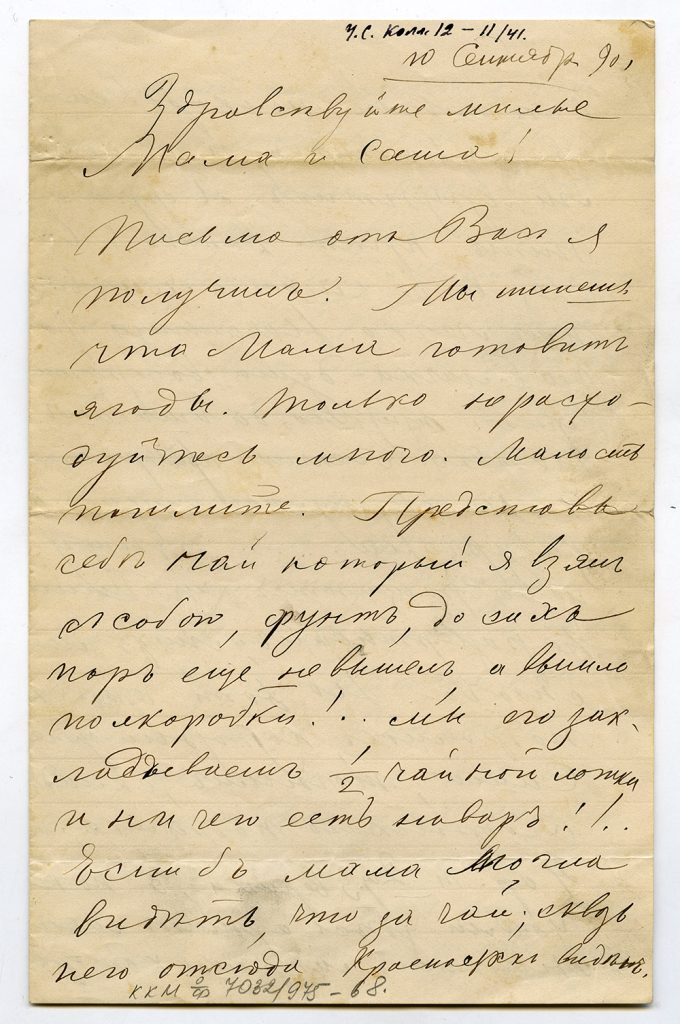 У.С. Колл. 12 – 11/41.
10 Сентября 90.
Здравствуйте милые
Мама и Саша!
Письма отъ Васъ я
получилъ. Ты пишешь
что Мама готовитъ
ягоды. Только не расхо-
дуйтесь много. Малость
пошлите. Представь
себѣ чай который я взялъ
съ собою, фунтъ, до сихъ
поръ еще не вышелъ, а вышло
полкоробки!.. Мы его зак-
ладываемъ 1/2 чайной ложки
и ничего есть наваръ!!..
Если бъ мама могла
видѣть, что за чай; сквозь
него отсюда Красноярскъ видѣнъ.
ККМ о/ф 7032/975 – 68.